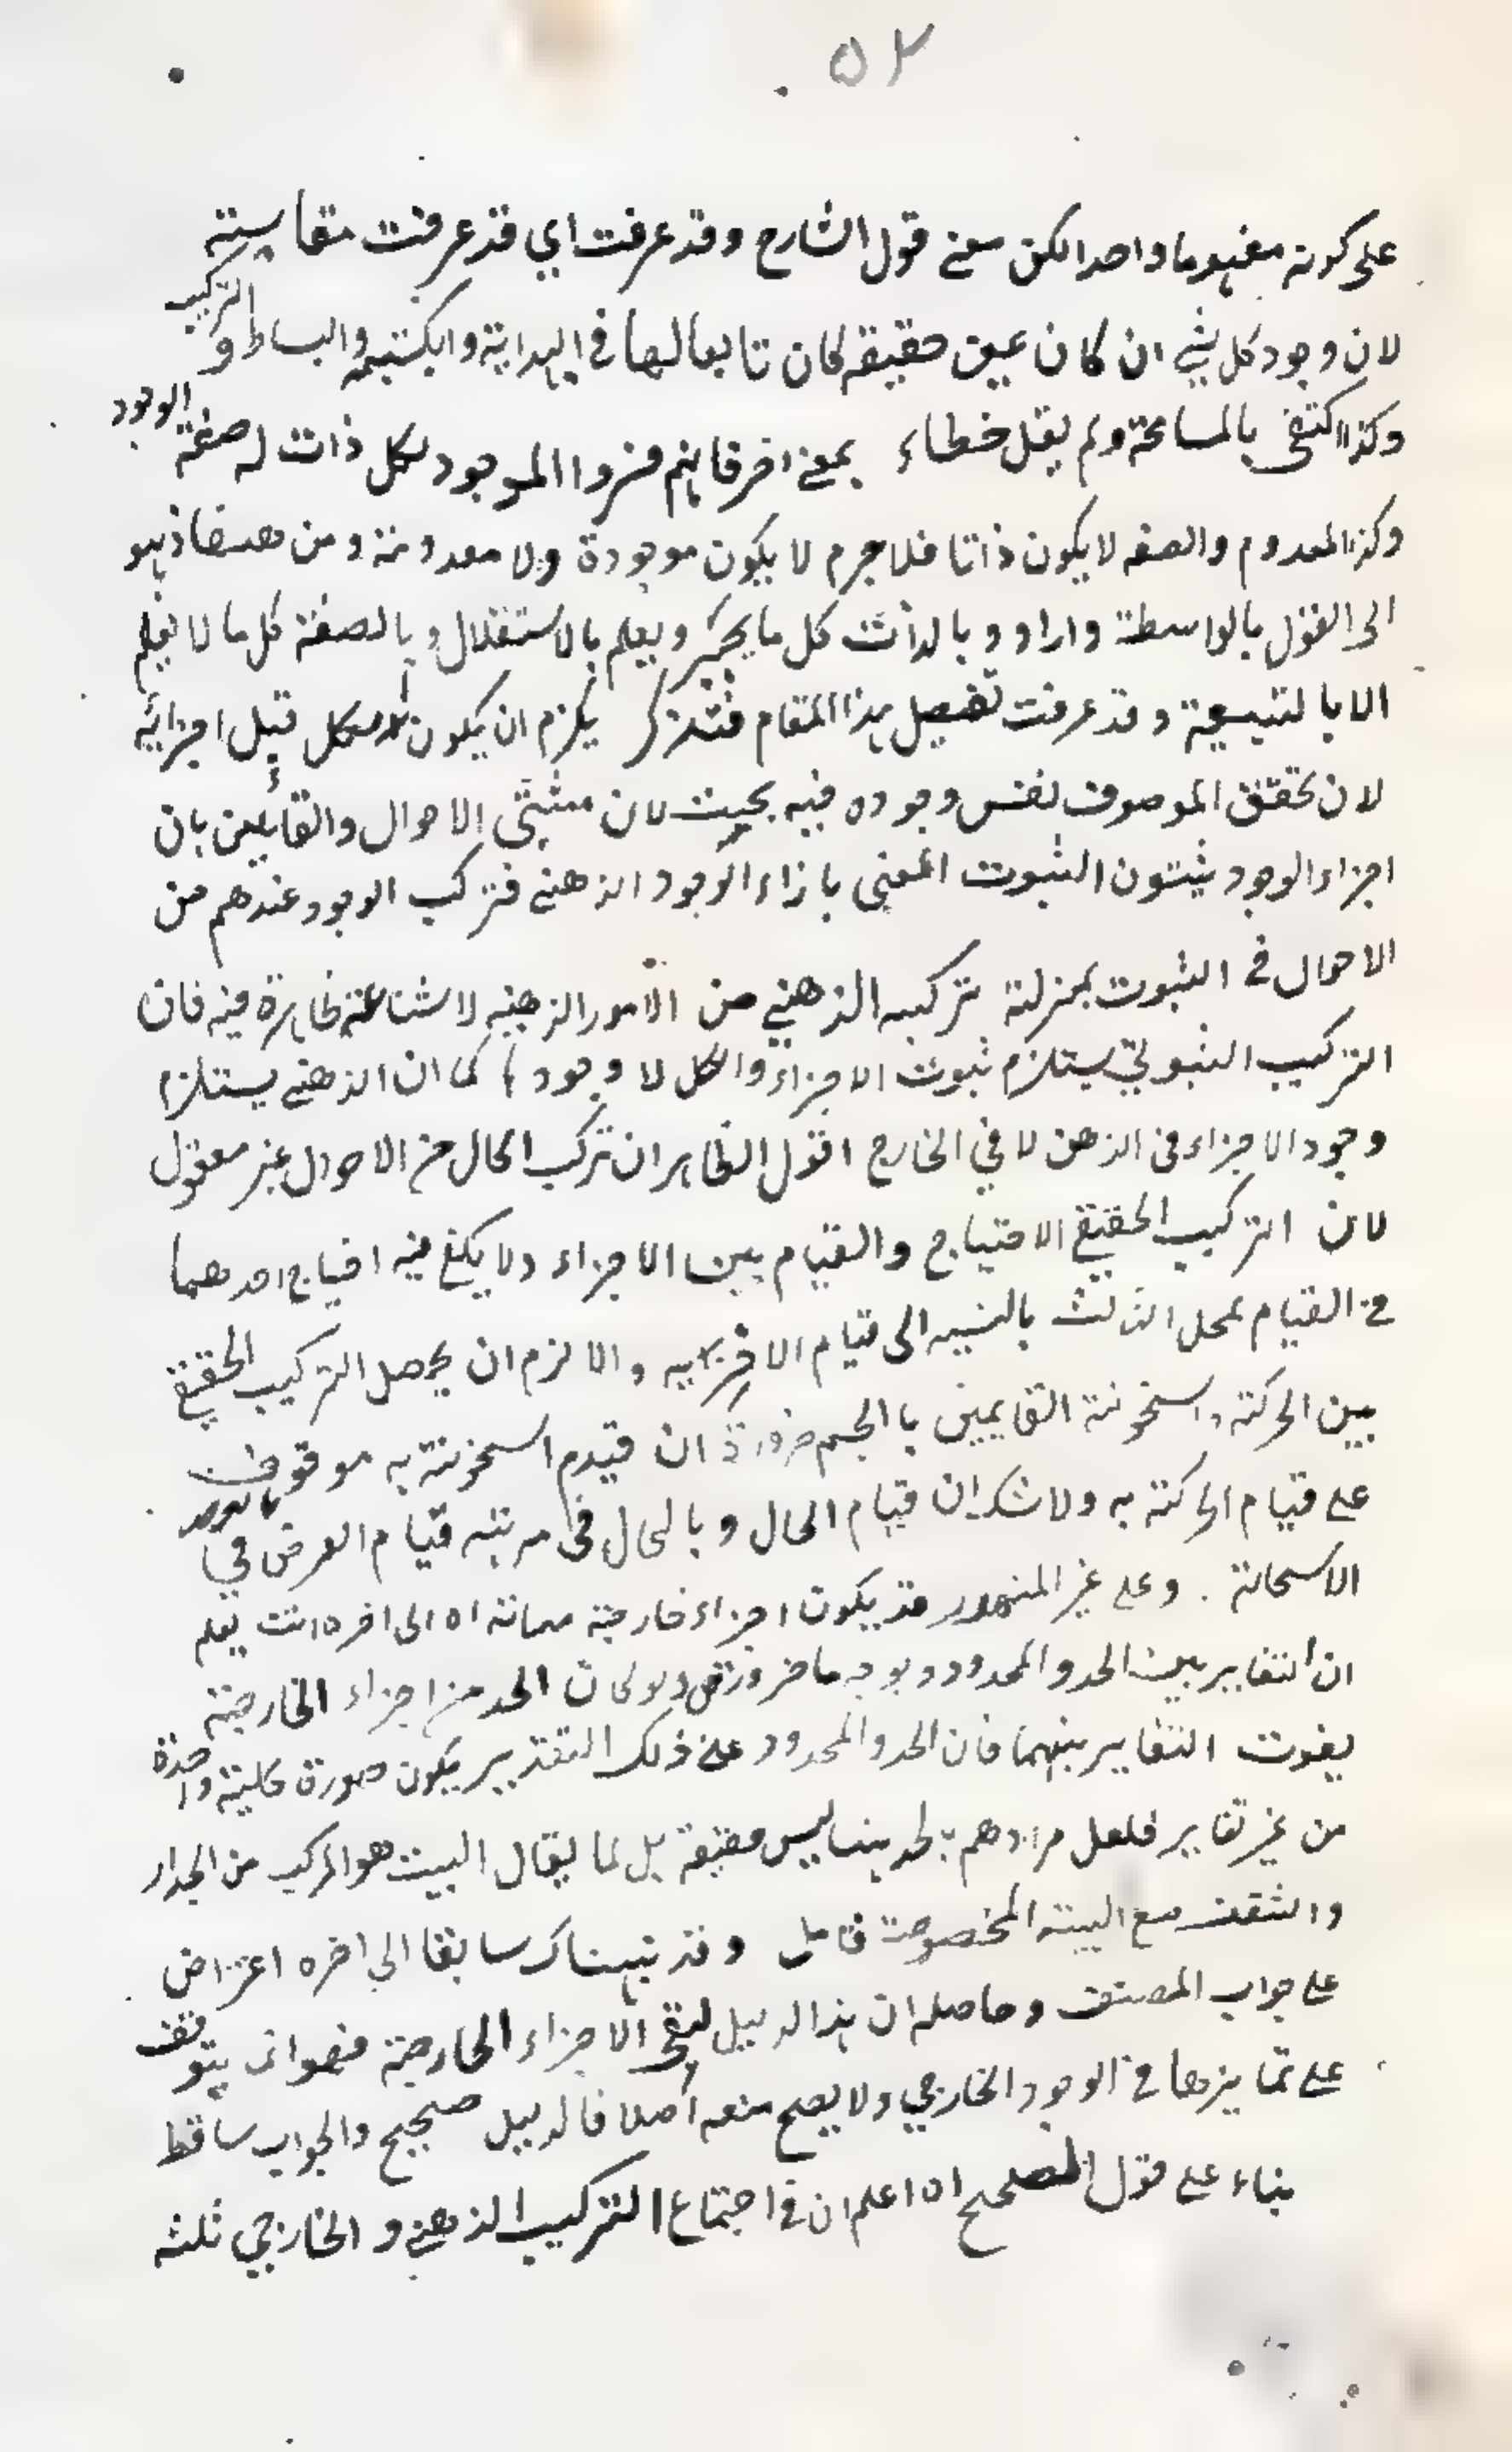 ٥٢
على كونه مفهوما واحدا لكن معنى قول الشارح وقد عرفت اي قد عرفت مقايسته
لان وجود كل شي ان كان عين حقيقة لكان تابعا لها في البداية والكسبية والبساط والتركيب
وكذا اكتفى بالمسامحة ولم يقل خطاء بمعنى اخر فانهم فسروا الموجود لكل ذات له صفة الوجود
وكذا المعدوم والصفه لا يكون ذاتا فلا جرم لا يكون موجودة ولا معدومة ومن هنا ذهبو
الى القول بالواسطة وارادو بالذات كل ما يخبر ويعلم بالاستقلال وبالصفة كل ما لا يعلم
الا بالتبعية وقد عرفت تفصيل هذا المقام فتذكر يلزم ان يكون الكل قبل اجزائه
لان تحقق الموصوف نفس وجوده فيه بحيث لان مثبتي الاحوال والقائلين بان
اجزاء الوجود يثبتون الثبوت المعنى بازاء الوجود الذهني فتركب الوجود عندهم من
الاحوال في الثبوت بمنزلة تركبه الذهني من الامور الذهنيه لا شناعة ظاهرة فيه فان
التركيب الثبوتي يستلزم ثبوت الاجزاء والكل لا وجودها كما ان الذهني يستلزم
وجود الاجزاء في الذهن لا في الخارج اقول الظاهر ان تركب الحال من الاحوال غير معقول
لان التركيب الحقيقي الاحتياج والقيام بين الاجزاء ولا يكفي فيه احتياج احدهما
في القيام بمحل الثالث بالنسبه الى قيام الاخر به والا لزم ان يحصل التركيب الحقيقي
بين الحركة والسخونة القايمين بالجسم ضرورة ان قيدم السخونة به موقوف
على قيام الحركة به ولا شك ان قيام الحال وبالحال في مرتبه قيام العرض في بالعرض
الاستحالة . وعلى غير المشهور قد يكون اجزاء خارجة مباينة اه الى اخره انت يعلم
ان التغاير بين الحد والمحدود بوجه ما ضروري ولو كان الحد من اجزاء الخارجية
يفوت التغاير بينهما فان الحد والمحدود على ذلك التقدير يكون صورة كلية واحدة
من غير تغاير فلعل مرادهم بالحد هنا ليس حقيقة بل لما يقال البيت هو المركب من الجدار
والسقف مع الهيئة المخصوصة فامل وقد نبهناك سابقا الى اخره اعتراض
على جواب المصنف وحاصله ان هذا الدليل لنفي الاجزاء الخارجية فهو انى يتوقف
على تمايزها في الوجود الخارجي ولا يصح منعه اصلا فالدليل صحيح والجواب ساقط
بناء على قول المصحح اه اعلم ان في اجتماع التركيب الذهني والخارجي ثلثه